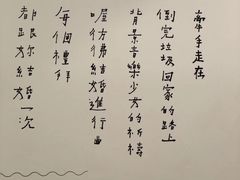 牽手走在
倒完垃圾回家的路上
背景音樂少女的祈禱
彷彿結婚進行曲
每個禮拜
都跟你結婚一次